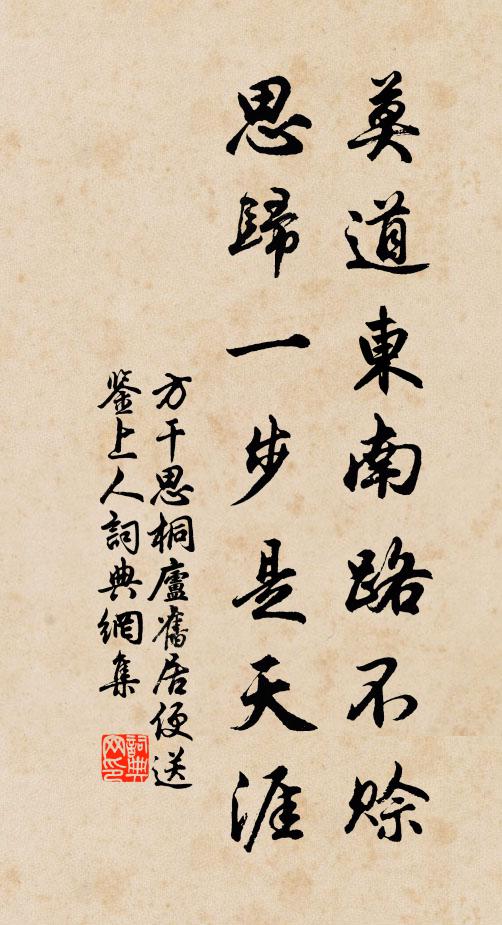 莫道東南路不賒
思歸一步是天涯
方干思桐廬舊居便送
鉴上人詞典網集
詞典网印